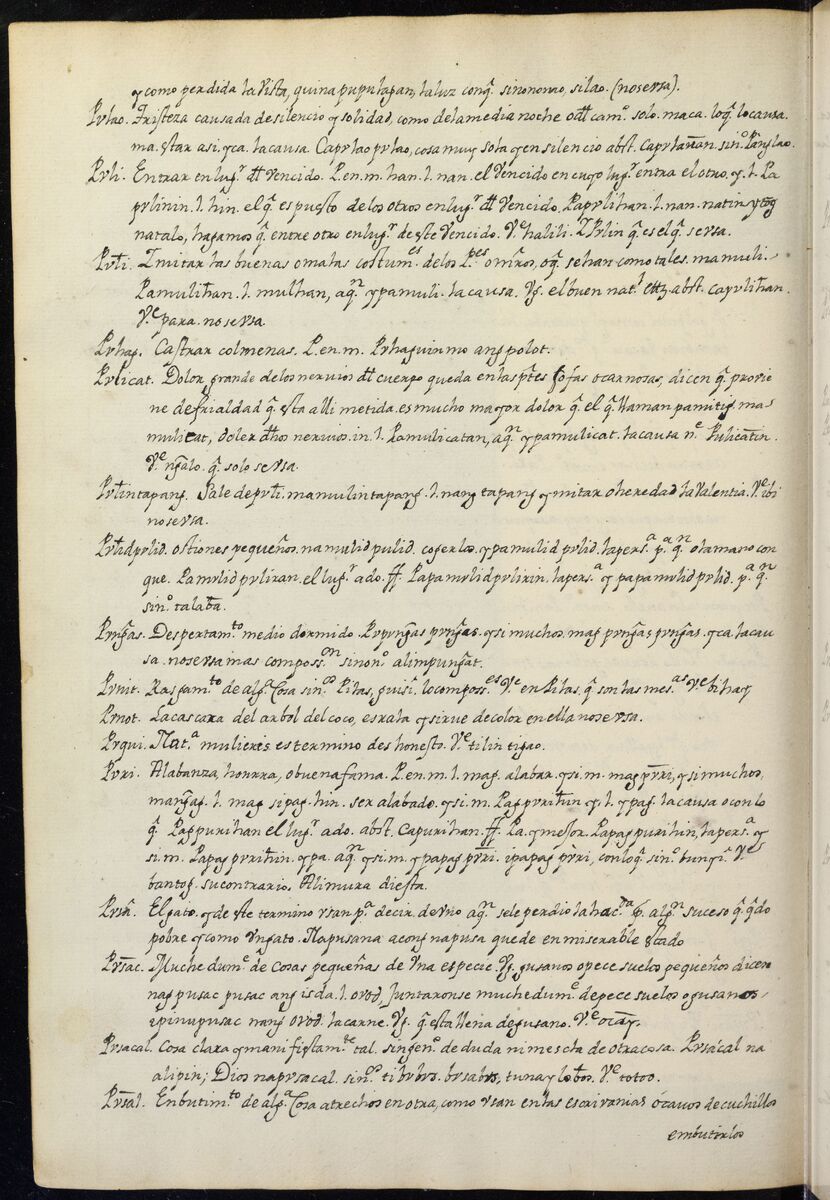 y como perdida la vista, quina pupulapan, la luz conq̃. sinonomo, silao. (no se vsa).
Pvlao. Tristeza causada de silencio y solidad, como dela media noche o dl̃ cam.º solo. maca. loq̃. lo causa.
ma. estar asi, y ca. la causa. Capvlao pvlao, cosa muy sola y en silencio abst. Capvlauan. sin.º Panglao.
Pvli. Entrar en lug.r dl̃ vencido. P. en. m. han. l. nan. el vencido en cuyo lug.r entra el otro, y. l. Pa
pvlinin. l. hin. el q̃. es puesto delos otros en lug.r dl̃ vencido. Papvlihan. l. nan. natin
natalo, hagamos q̃. entre otro en lug.r de este vencido. V.e halili. Pvlin q̃. es el q̃. se vsa.
Pvli. Imitar las buenas o malas costum.es delos P.es o mros, o q̃. se han como tales. mamuli.
Pamulihan. l. mulhan, aq.n y pamuli. la causa. Vg. el buen nat.l abst. capvlihan.
V.e para. no se vsa.
Pvhag. Castrar colmenas. P. en. m. Pvhaguin mo ang polot.
Pvlicat. Dolor grande delos nervios dl̃ cuerpo queda en las ptes fofas o carnosas, dicen q̃. provie
ne de frialdad q̃. esta alli metida. es mucho mayor dolor q̃. el q̃. llaman pamitig. ma=
mulicat, doler dhos nervios. in. l. Pamulicatan, aq.n y pamulicat. la causa n.e Pulicatin.
V.e ngalo. q̃. solo se vsa.
Pvlintapang. Sale de pvli. mamulintapang. l. nang tapang y mitar o heredad la valentia. V.e ibi
no se vsa.
Pvlidpvlid. ostiones pequeños. namulid pulid. coger los. y pamulid pvlid. la pers.a p.a q.n o la mano con
que. Pamvlidpvliran. el lug.r ado. ff. Papamvlidpvlirin. la pers.a y papamvlid pvlid. p.a q.n
sin.º talaba.
Pvngas. Despertam.to medio dormido. Pvpvngas pvngas. y si muchos. mag pvngas pvngas. y ca la cau
sa. no se vsa mas composs.on sinon.º alimpungat.
Pvnit. Rasgam.to de alg.a cosa sin.º Pilas, guisi. lo composs.es V.e en Pilas. q̃. son las mes.as V.e bihay
Pvnot. La cascara del arbol del coco, es rala y sirue de color en ella no se vsa.
Pvqui. Nat.a mulieris. es termino deshonesto. V.e tilin tigao.
Pvri. Alabanza, honrra, o buena fama. P. en. m. l. mag. alabar. y si. m. mag pvri, y si muchos,
mangag. l. mag sipag. hin. ser alabado. y si. m. Pag pvrihin y. l. y pag. la causa o con lo
q̃. Pagpurihan el lug.r ado. abst. Capurihan. ff. Pa. y mejor. Papag purihin, la pers.a y
si. m. Papag pvrihin. y pa. aq.n y si. m. y papag pvri. ipapag pvri, con loq̃. sin.º bunyi. V.e
bantog. su contrario. Alimura diesta.
Pvsa. El gato. y de este termino vsan p.a decir. de vno aq.n se le perdio la hac.da p. alg.n suceso q̃. qdo
pobre y como vn gato. Napusana acong napusa quede en miserable stado
Pvsac. Muchedum.e de cosas pequeñas de vna especie. Vg. gusanos o pecesuelos pequeños dicen
nag pusac pusac ang isda. l. ovod, juntaronse muchedum.e de pecesuelos o gusanos,
ipinupusac nang ovod. la carne. Vg. q̃. esta llena de gusano. V.e
Pvsacal. cosa clara y manifiestam.te tal. sin gen.º de duda ni mescla de otra cosa. Pvsacal na
alipin; Dios na pvsacal. sin.º tibvbvs. bvsabvs, tunay lobos. V.e totoo.
Pvsal. Enbutim.to de alg.a cosa a trechos en otra, como vsan en las escrivanias o cauos de cuchillos
embutirlos